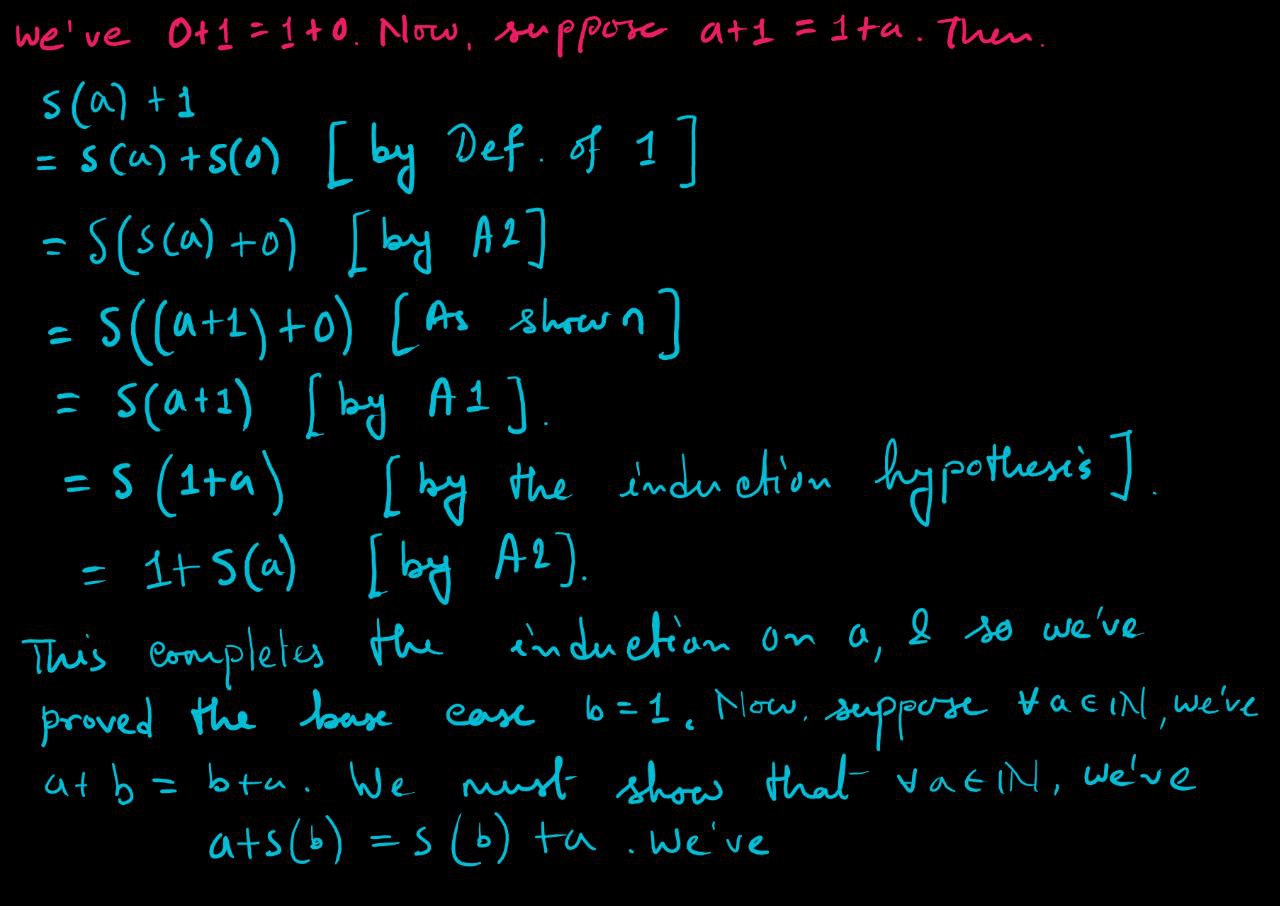 We've 0+1 = 1+0. Now, suppose a+1 = 1+a. Then.
S(a) + 1
= S(a) + S(0) [by Def. of 1]
= S(S(a) + 0) [by A2]
= S((a+1) + 0) [As shown]
= S(a+1) [by A1].
= S(1+a) [by the induction hypothesis].
= 1 + S(a) [by A2].
This completes the induction on a, & so we've
proved the base case b = 1. Now, suppose ∀ a ∈ ℕ, we've
a + b = b + a. We must show that ∀ a ∈ ℕ, we've
a + S(b) = S(b) + a. We've